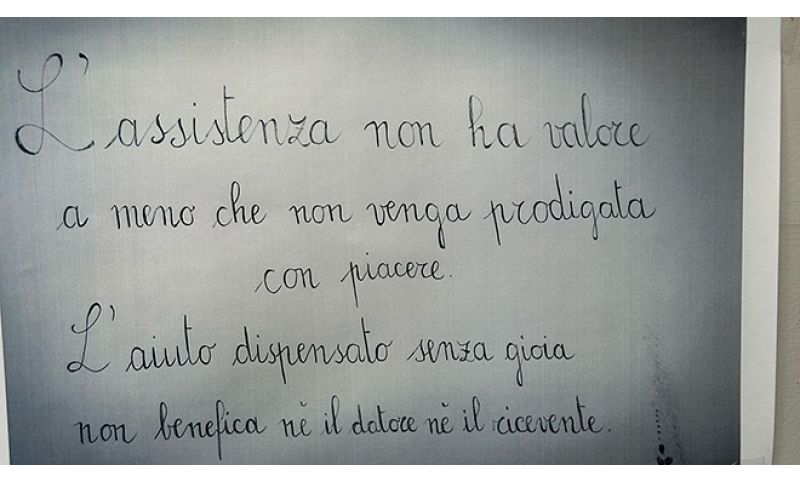 L'assistenza non ha valore
a meno che non venga prodigata
con piacere.
L'aiuto dispensato senza gioia
non benefica nè il datore nè il ricevente.